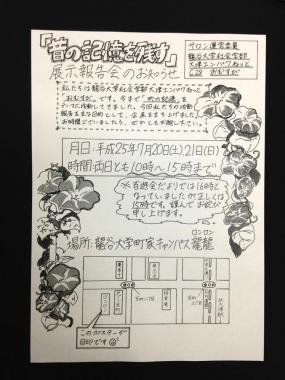 「昔の記憶を残す」
展示報告会のお知らせ
サロン運営委員
龍谷大学社会学部
大津エンパワねっと
おむすが
私たちは龍谷大学社会学部大津エンパワねっと
おむすが です。今まで「町の記憶」を
テーマに活動してきました。今回私たちの活動
報告を主な目的として、企画をまとめました。
お時間ございましたら、ぜひともお越し下さい。
月日:平成25年7月20(土)21(日)
時間:両日とも10時〜15時まで
※百遊会だよりでは16時と
なっていましたが正しくは
15時です。謹んでお詫び
申し上げます。
ロンロン
場所:龍谷大学町家キャンパス龍龍
このポスターが
目印です